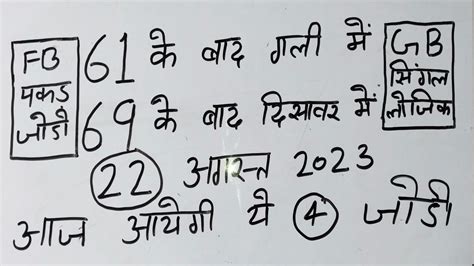 FB
पकड
जोडी
61 के बाद गली में
69 के बाद दिसावर में
GB
सिंगल
लोजिक
22 अगस्त 2023
आज आयेगी ये 4 जोडी